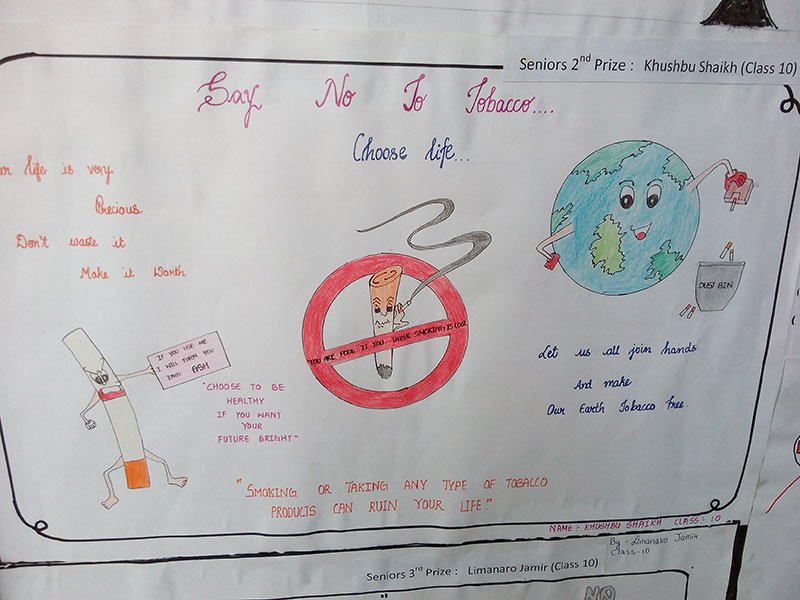 Seniors 2nd Prize : Khushbu Shaikh (Class 10)
Say No To Tobacco....
Choose life...
ur life is very
Precious
Don't waste it
Make it Worth
IF YOU USE ME
I WILL TURN YOU
INTO ASH
"CHOOSE TO BE
HEALTHY
IF YOU WANT
YOUR
FUTURE BRIGHT"
YOU ARE FOOL IF YOU THINK SMOKING IS COOL
DUST BIN
Let us all join hands
And make
Our Earth Tobacco free.
"SMOKING OR TAKING ANY TYPE OF TOBACCO
PRODUCTS CAN RUIN YOUR LIFE"
NAME:- KHUSHBU SHAIKH CLASS:- 10
By - Limanaro Jamir
Class-10
Seniors 3rd Prize : Limanaro Jamir (Class 10)
NO